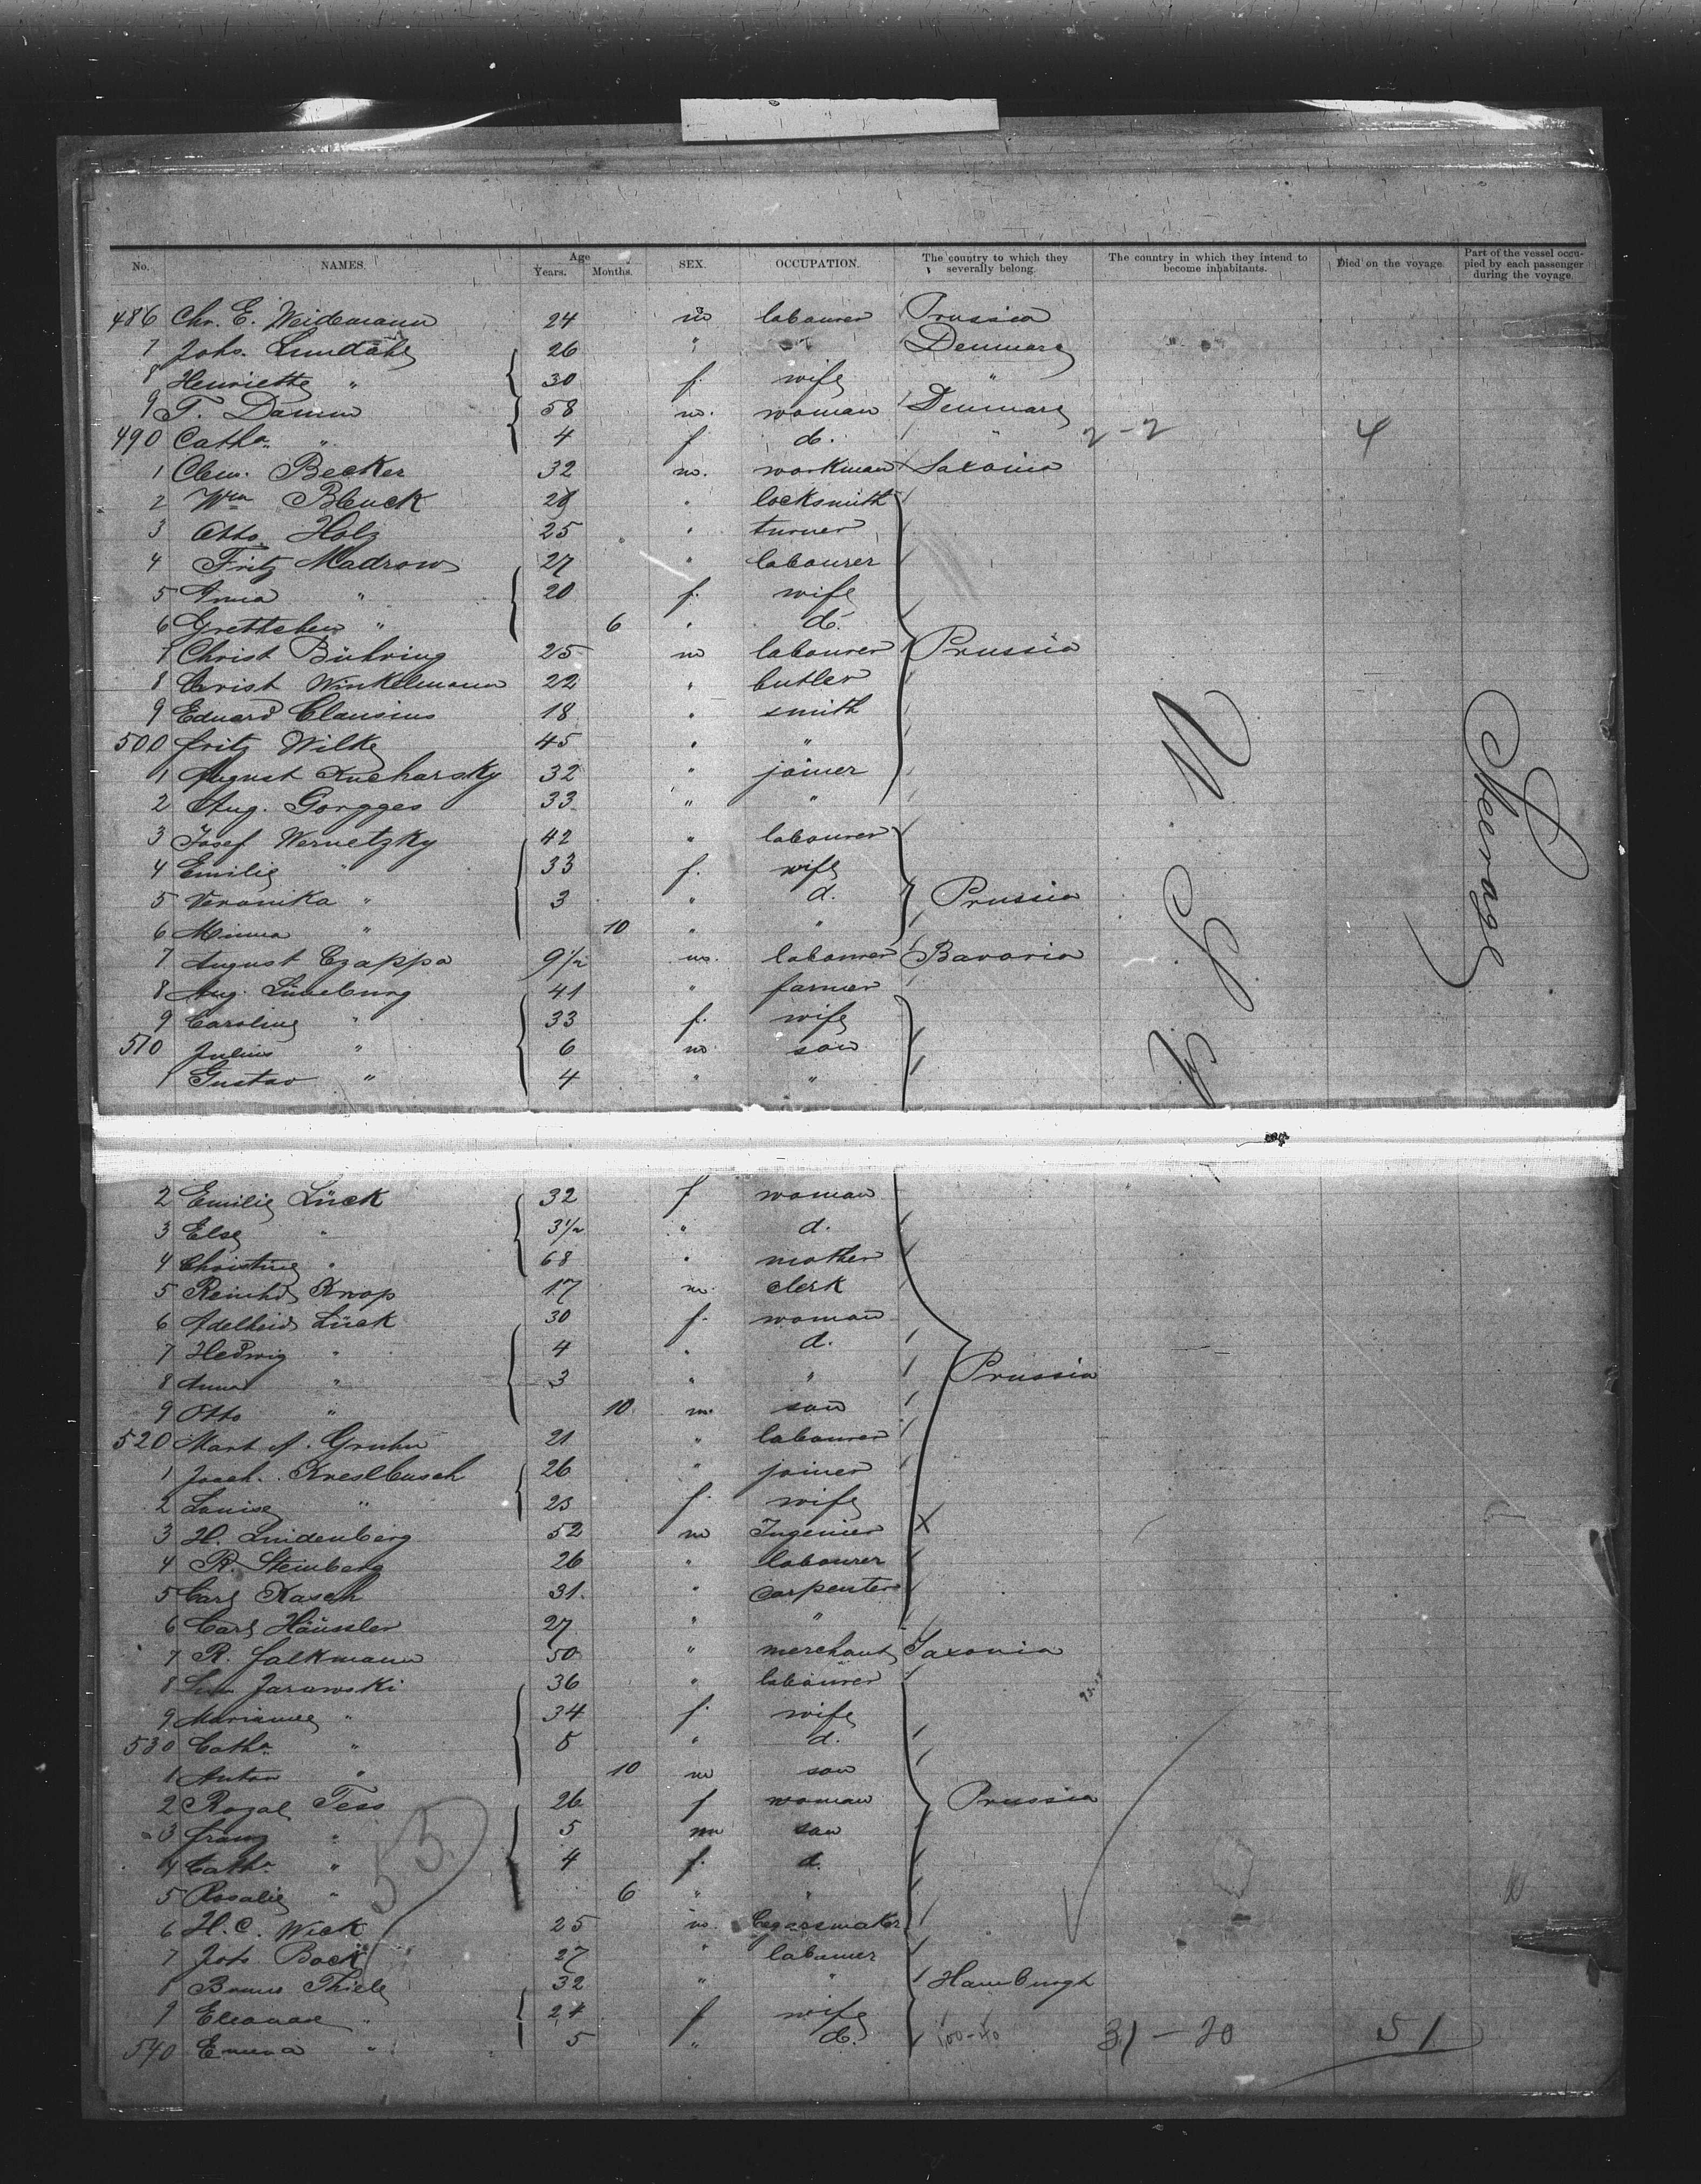 No. NAMES. Age Years. Months. SEX. OCCUPATION. The country to which they severally belong. The country in which they intend to become inhabitants. Died on the voyage. Part of the vessel occupied by each passenger during the voyage.
486 Chr. E. Weidemann 24 m labourer Prussia
7 Johs. Lundahl 26 " " Denmark
8 Henriette " 30 f. wife "
9 T. Damm 58 m. woman Denmark
490 Catha. " 4 f d. " 2-2 4
1 Clem. Becker 32 m. workman Saxonia
2 Wm Blenck 28 " locksmith
3 Otto Holz 25 " turner
4 Fritz Madrow 27 " labourer
5 Anna " 20 f. wife
6 Grethchen " 6 " d.
7 Christ Bühring 25 m labourer Prussia
8 Christ Winkelmann 22 " butler
9 Eduard Clausius 18 " smith
500 Fritz Wilke 45 " "
1 August Kucharsky 32 " joiner
2 Aug. Gorgges 33 " "
3 Josef Wernetzky 42 " labourer
4 Emilie " 33 f. wife
5 Veronika " 3 " d. Prussia
6 Minna " 10 " "
7 August Czappa 9 1/2 m. labourer Bavaria
8 Aug. Lüneburg 41 " farmer
9 Caroline " 33 f. wife
510 Julius " 6 m son
1 Gustav " 4 " "
U S A
Steerage
2 Emilie Lück 32 f woman
3 Else " 3 1/2 " d.
4 Christine " 68 " mother
5 Reinhd Knop 17 m. clerk
6 Adelheid Lück 30 f. woman
7 Hedwig " 4 " d.
8 Anna " 3 " " Prussia
9 Otto " 10 m. son
520 Mart A. Gruhn 21 " labourer
1 Joach. Kreslbusch 26 " joiner
2 Louise " 23 f. wife
3 H. Lindenberg 52 m Ingenier X
4 R. Steinberg 26 " labourer
5 Carl Kasch 31 " carpenter
6 Carl Häussler 27 " "
7 R. Falkmann 50 " merchant Saxonia
8 Jarawski 36 " labourer
9 Marianne " 34 f. wife
530 Catha. " 5 " d.
1 Anton " 10 m son
2 Rozal Tess 26 f woman Prussia
3 Franz " 5 m son
4 Catha. " 4 f. d.
5 Rosalie " 6 " "
6 H. C. Wick 25 m. Cegarsmaker
7 Joh. Bock 27 " labourer
8 Bruno Thiele 32 " " Hamburgh
9 Eleonore " 24 f wife
540 Emma " 5 " d. 100-40 31-20 51